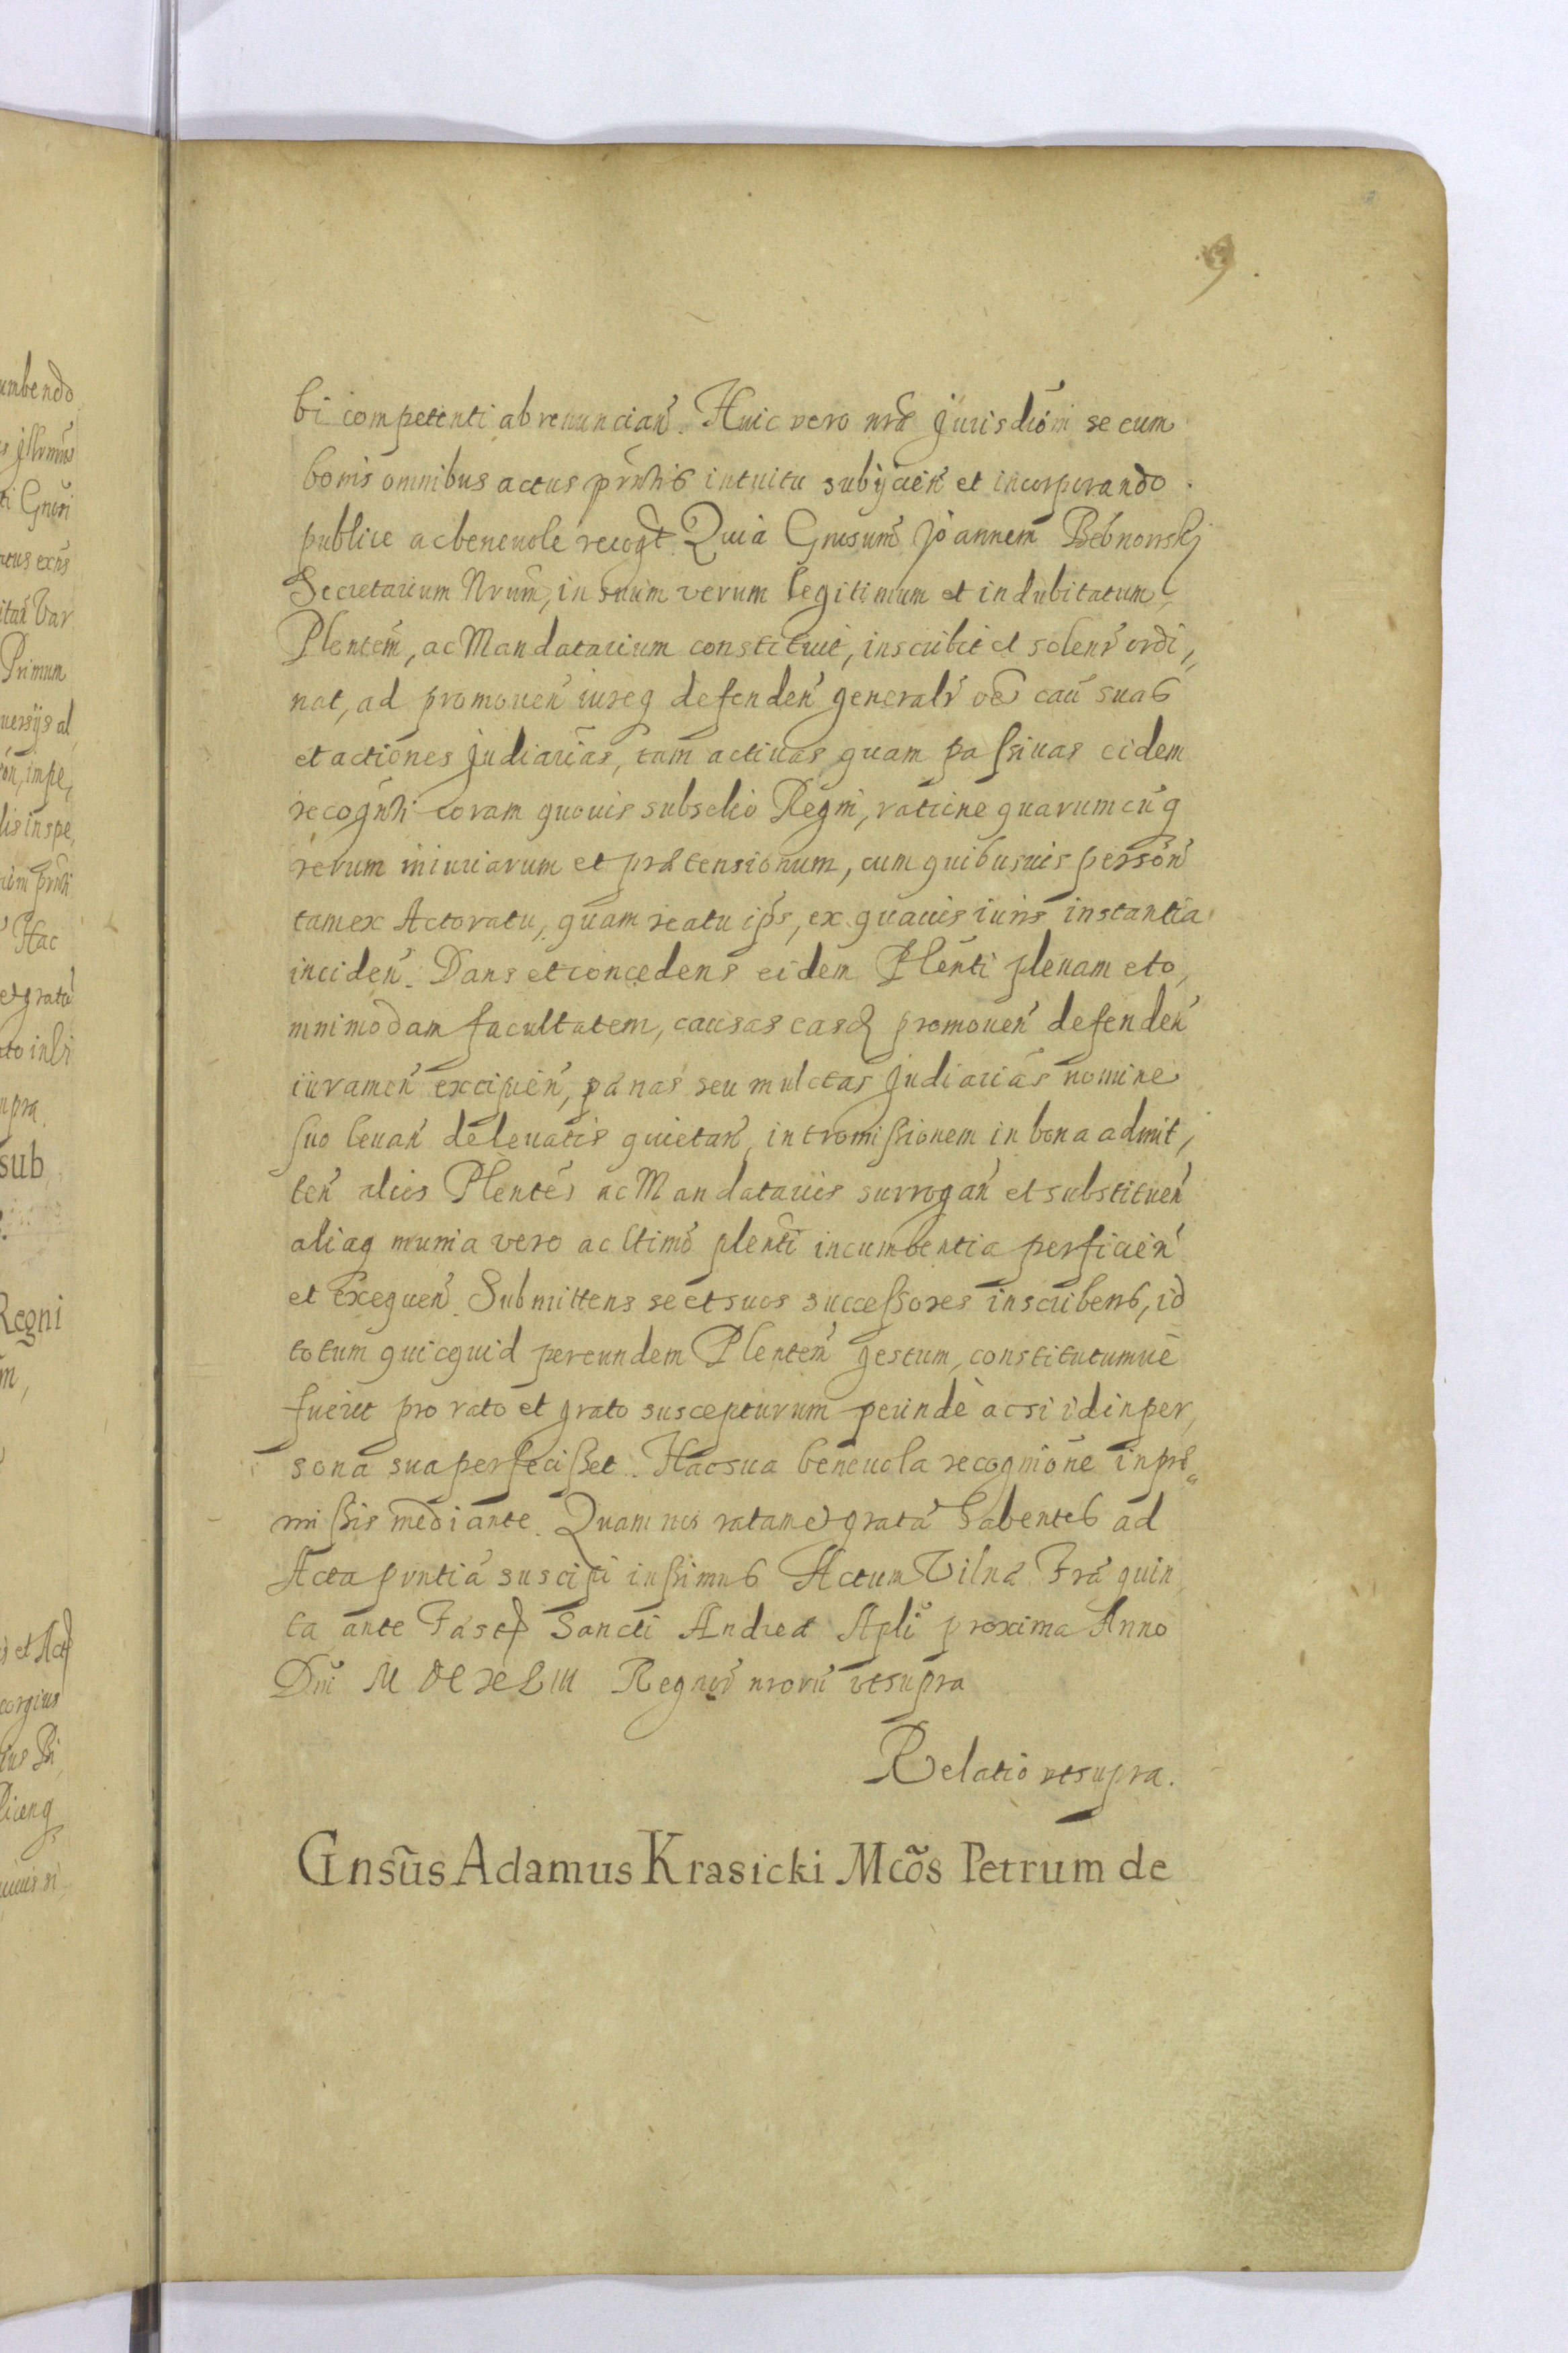 9.
bi competenti abrenuncian̄. Huic vero nr̄æ Jurisdiōni se cum
bonis omnibus actus prn̄tis intuitu subijcien̄ et incorporando.
publice ac beneuole recogt̄. Quia Gnrsum̄ Joannem Bębnowskj
Secretarium Nrum̄, in suum verum legitimum et indubitatum
Plentem̄, ac Mandatarium constituit, inscribit et solenr̄ ordi„
nat, ad promouen̄ iureq defenden̄ generalr̄ oēs cau̅ suas
et actiones Judiciarias, tam actiuas quam passiuas eidem
recogn̄ti coram quouis subselio Regni, ratione quarumcu̅q
rerum iniuriarum et prætensionum, cum quibusuis person̄
tam ex Actoratu, quam reatu ip̄s, ex quauis iuris instantia
inciden̄. Dans et concedens eidem Plen̄ti plenam et o,
mnimodam facultatem, causas easq̨ promouen̄ defenden̄
iuramen̄ excipien̄, pænas seu mulctas Judiciarias nomine
suo leuan̄ de leuatis quietan̄, intromissionem in bona admit,
ten̄ alios Plentēs ac Mandatarios surrogan̄ et substituen̄
aliaq munia vero ac ltimo̅ plen̄ti incumbentia perficien̄
et exequen̄. Submittens se et suos successores inscribens, id
totum quicquid per eundem Plentem̄ gestum, constitutumue
fuerit pro rato et grato suscepturum perindè ac si id in per,
sona sua perfecisset. Hac sua beneuola recogniōne in præ„
missis mediante. Quam nos ratam et grata̅ habentes ad
Acta prntia̅ suscipi iussimus Actum Vilnæ Fr̄a quin
ta ante Fest̄ Sancti Andreæ Apli̅ proxima Anno
Dni̅ M DC XL III Regnor̄ nroru̅ vt supra
Relatio vt supra.
Gnsūs Adamus Krasicki Mcōs Petrum de